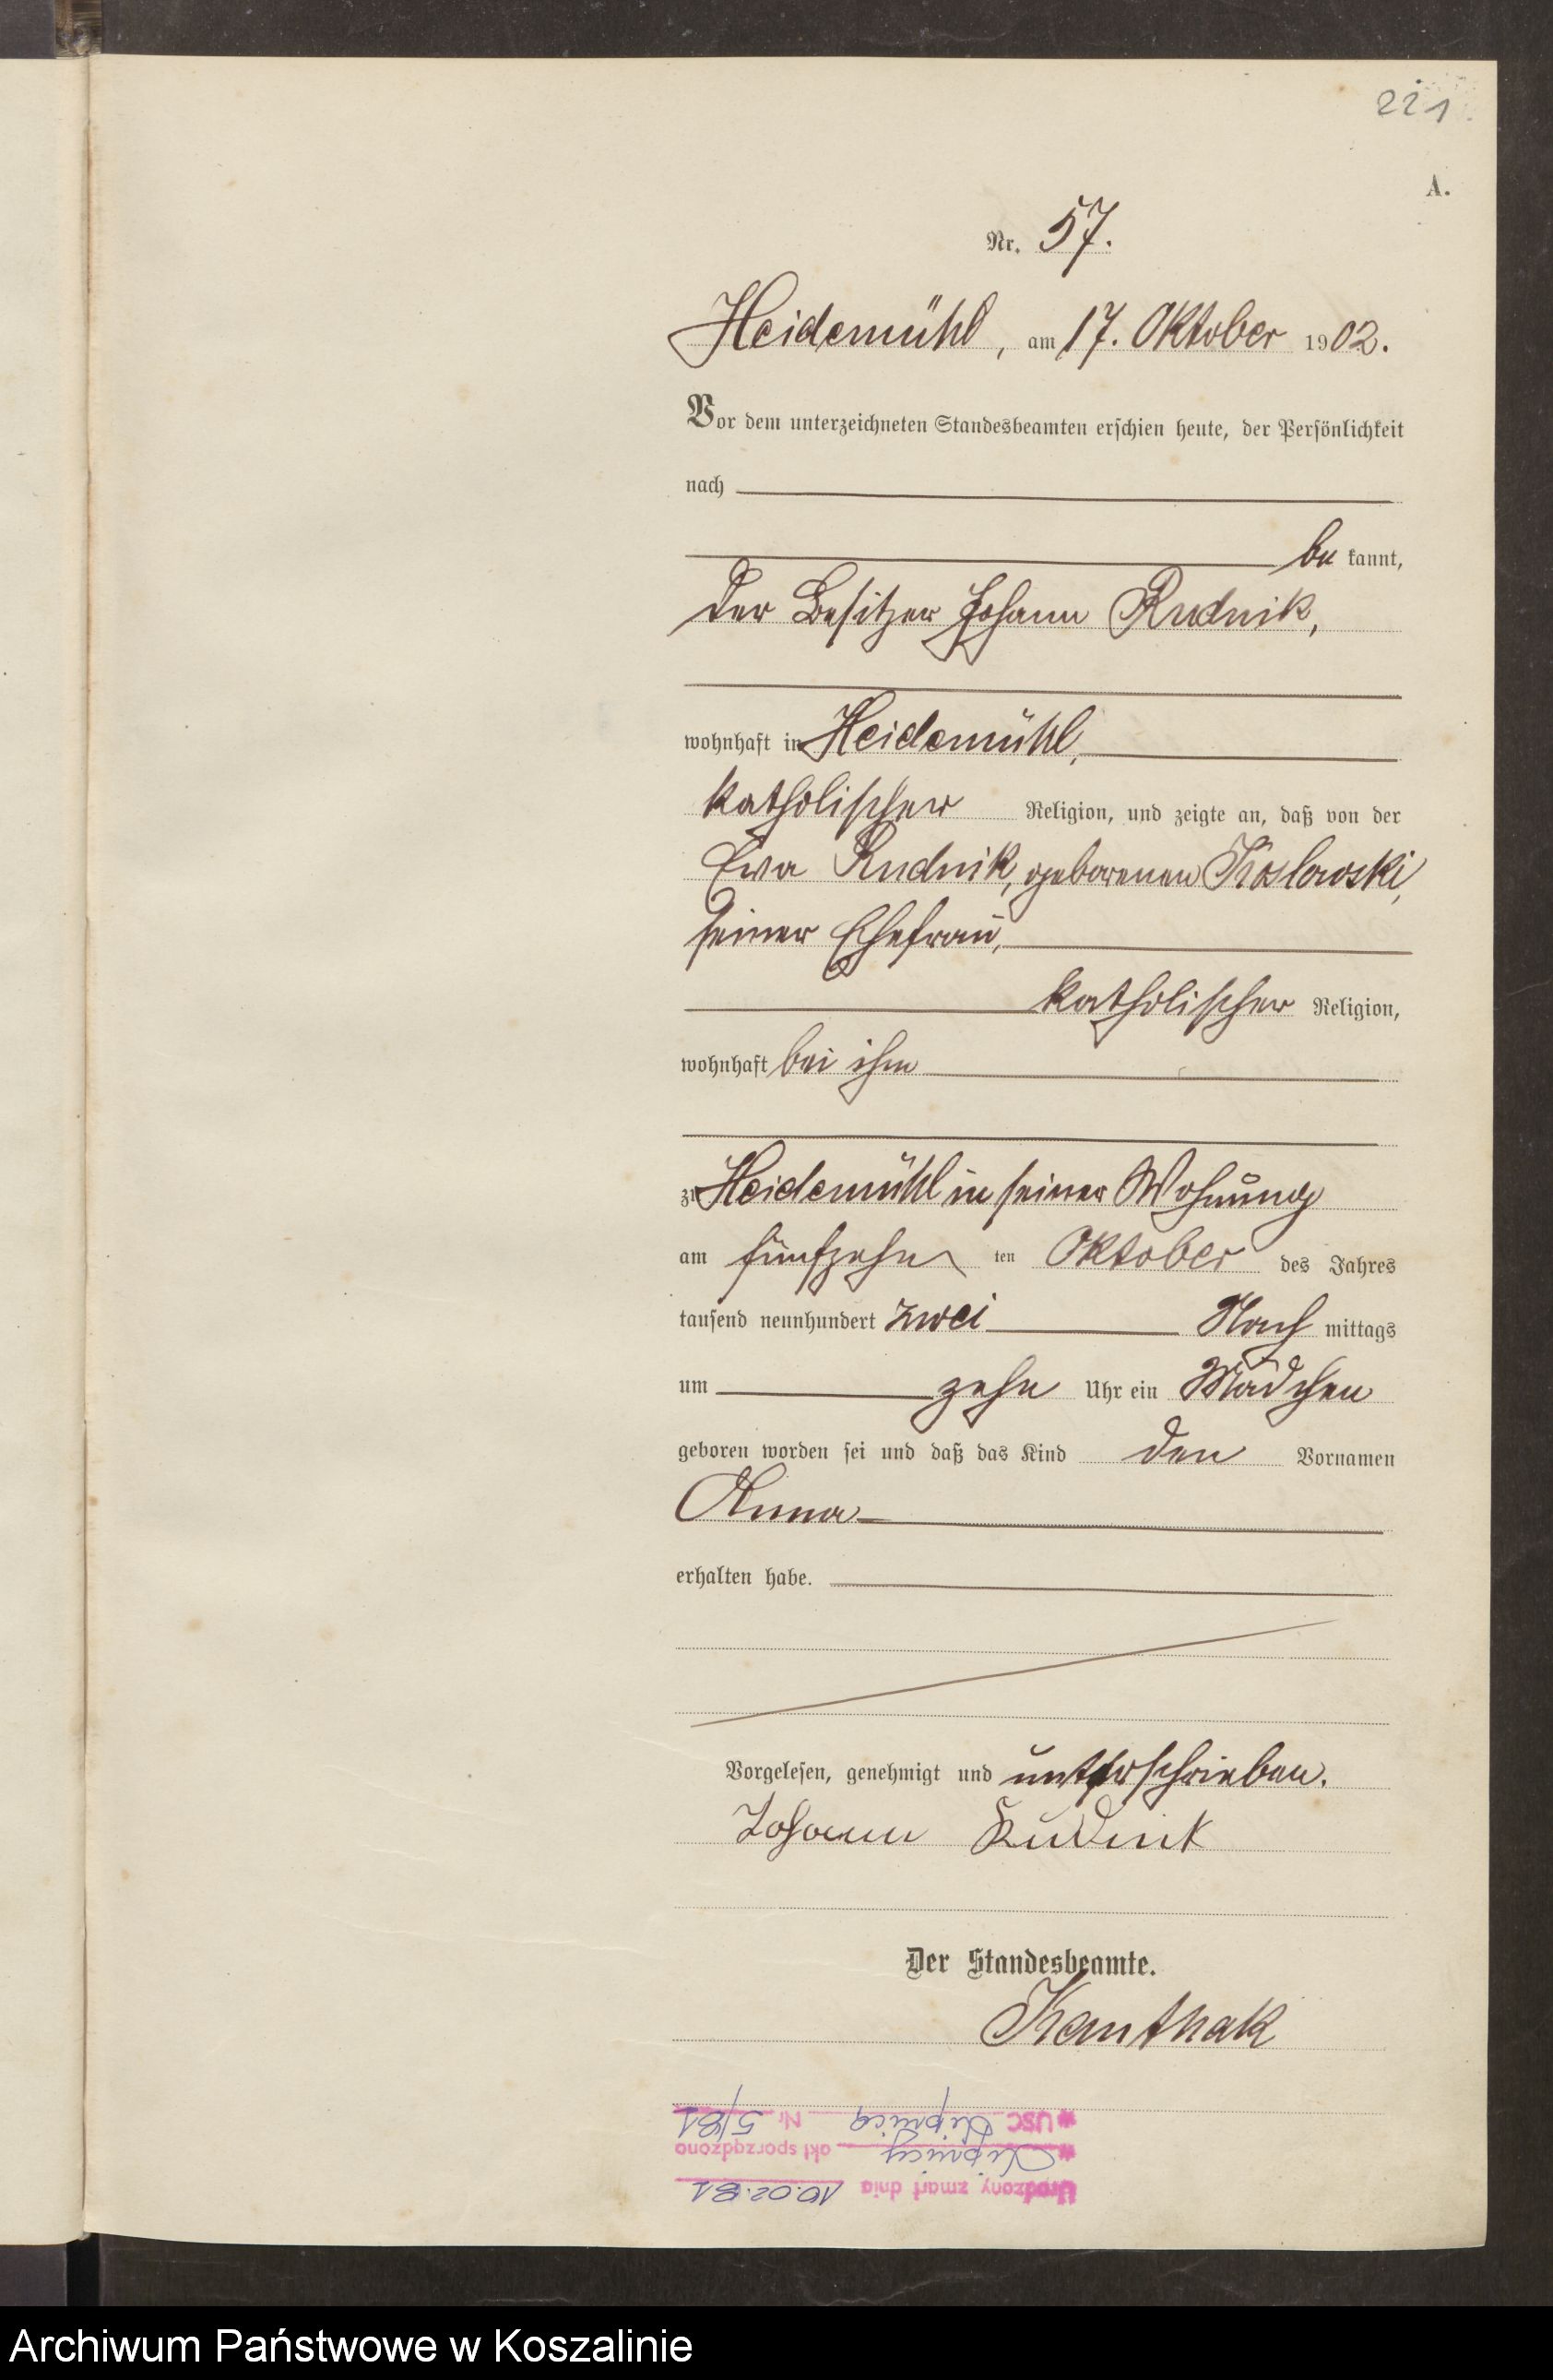 221
A.
Nr. 57.
Heidemühl, am 17. Oktober 1902.
Vor dem unterzeichneten Standesbeamten erschien heute, der Persönlichkeit
nach
be kannt,
der Besitzer Johann Rudnik,
wohnhaft in Heidemühl,
katholischer Religion, und zeigte an, daß von der
Eva Rudnik, geborenen Koslowski,
seiner Ehefrau,
katholischer Religion,
wohnhaft bei ihm
zu Heidemühl in seiner Wohnung
am fünfzehn ten Oktober des Jahres
tausend neunhundert zwei Nach mittags
um zehn Uhr ein Mädchen
geboren worden sei und daß das Kind den Vornamen
Anna
erhalten habe.
Vorgelesen, genehmigt und unterschrieben.
Johann Rudnik
Der Standesbeamte.
Kanthak
Urodzony zmarł dnia 10.02.81
Lipnicy akt sporządzono
USC Lipnica Nr 5/81
Archiwum Państwowe w Koszalinie